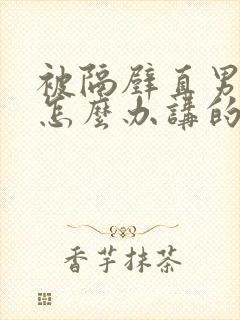 被隔壁直男
怎麼办講的
香芋抹茶